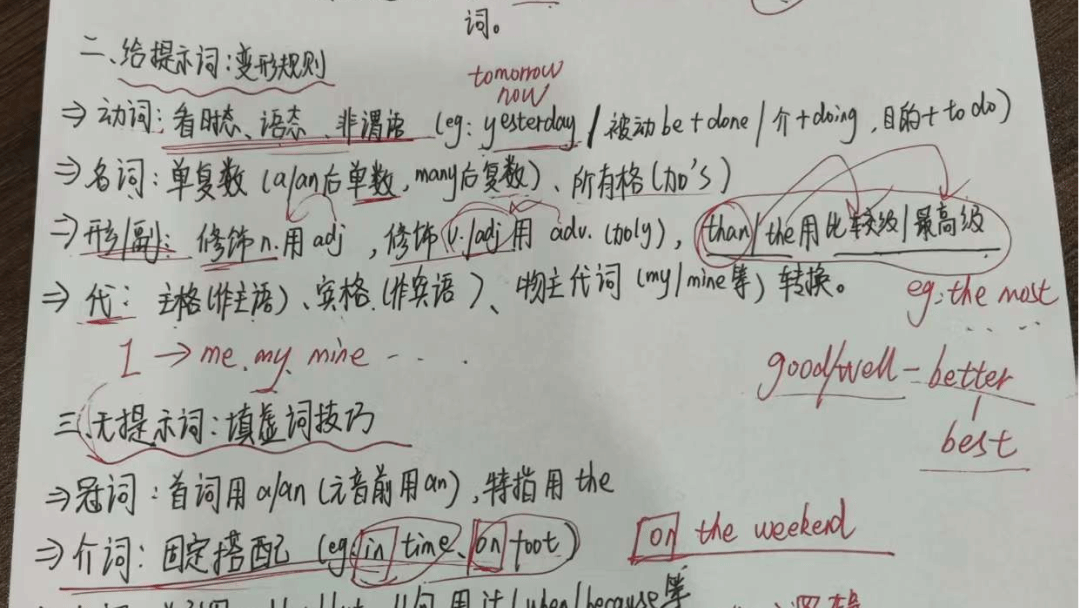 词。
二、给提示词：变形规则
tomorrow
now
⇒ 动词：看时态、语态、非谓语（eg：yesterday / 被动be+done / 介+doing，目的+to do）
⇒ 名词：单复数（a/an后单数，many后复数）、所有格（加's）
⇒ 形/副：修饰n.用adj，修饰v./adj用adv.（加ly），than/the用比较级/最高级
⇒ 代：主格（作主语）、宾格（作宾语）、物主代词（my/mine等）转换。
eg：the most
I → me、my、mine ....
good/well - better
best
三、无提示词：填虚词技巧
⇒ 冠词：首词用a/an（元音前用an），特指用the
⇒ 介词：固定搭配（eg：in time、on foot）
on the weekend
when/because等
逻辑